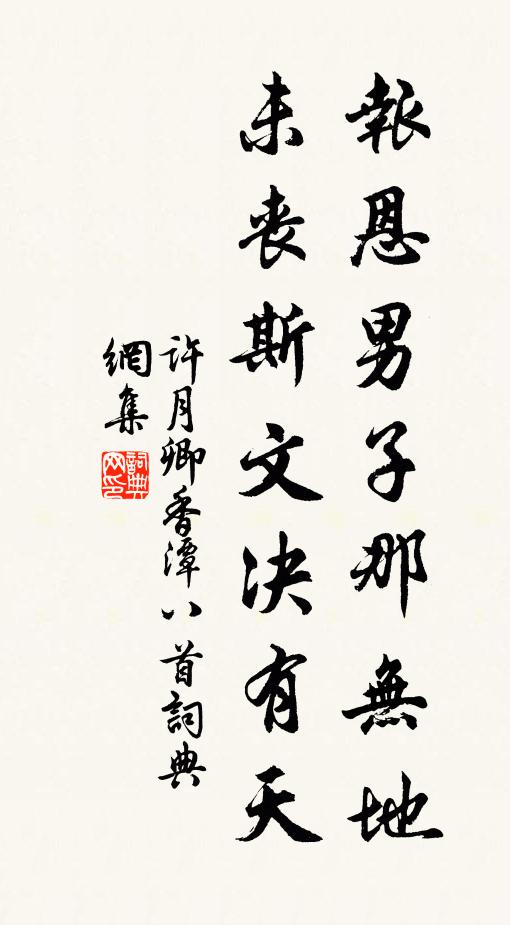 報恩男子那無地
未丧斯文决有天
許月卿香潭八首詞典
網集
詞典網印